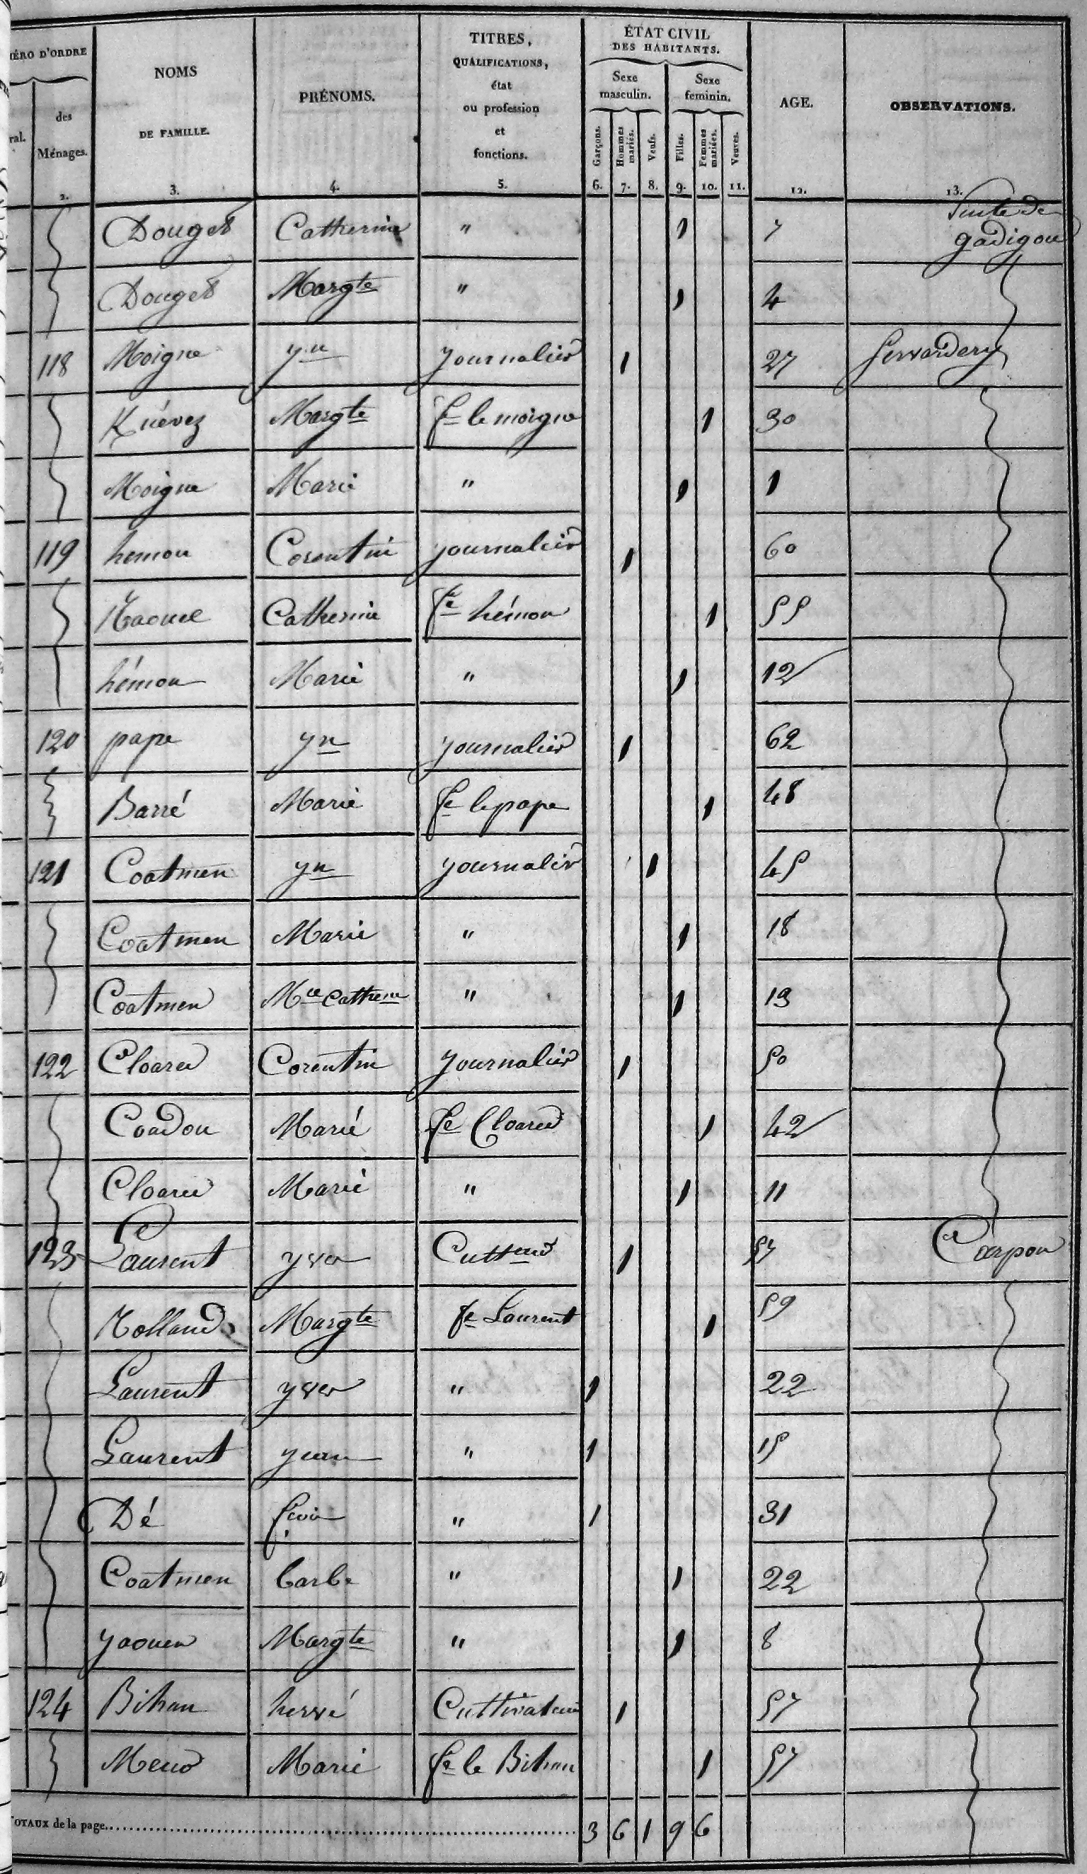 ÉRO D'ORDRE
ral.
des Ménages.
2.
NOMS
DE FAMILLE.
3.
PRÉNOMS.
4.
TITRES,
QUALIFICATIONS,
état
ou profession
et
fonctions.
5.
ÉTAT CIVIL
DES HABITANTS.
Sexe masculin.
Sexe feminin.
Garçons. 6.
Hommes mariés. 7.
Veufs. 8.
Filles. 9.
Femmes mariées. 10.
Veuves. 11.
AGE.
12.
OBSERVATIONS.
13.
Suite de
gadigou
Douget Catherine " 1 7
Douget Margte " 1 4
118 Moigne yn journalier 1 27
Knévez Margte fe le moigne 1 30
Moigne Marie " 1 1
119 hemon Corentin journalier 1 60
Catherine fe hémon 1 55
hémon Marie " 1 12
120 pape yn journalier 1 62
Barré Marie fe le pape 1 48
121 Coatmen yn journalier 1 45
Coatmen Marie " 1 18
Coatmen Mie Catherine " 1 13
122 Cloarec Corentin journalier 1 50
Coadou Marie fe Cloarec 1 42
Cloarec Marie " 1 11
123 Laurent yves Cultteur 1 57 Carpon
Rolland Margte fe Laurent 1 59
Laurent yves " 1 22
Laurent jean " 1 15
Dé " 1 31
Coatmen barbe " 1 22
yaouen Margte " 1 8
124 Bihan hervé Cultivateur 1 57
Meur Marie fe le Bihan 1 57
TOTAUX de la page 3 6 1 9 6